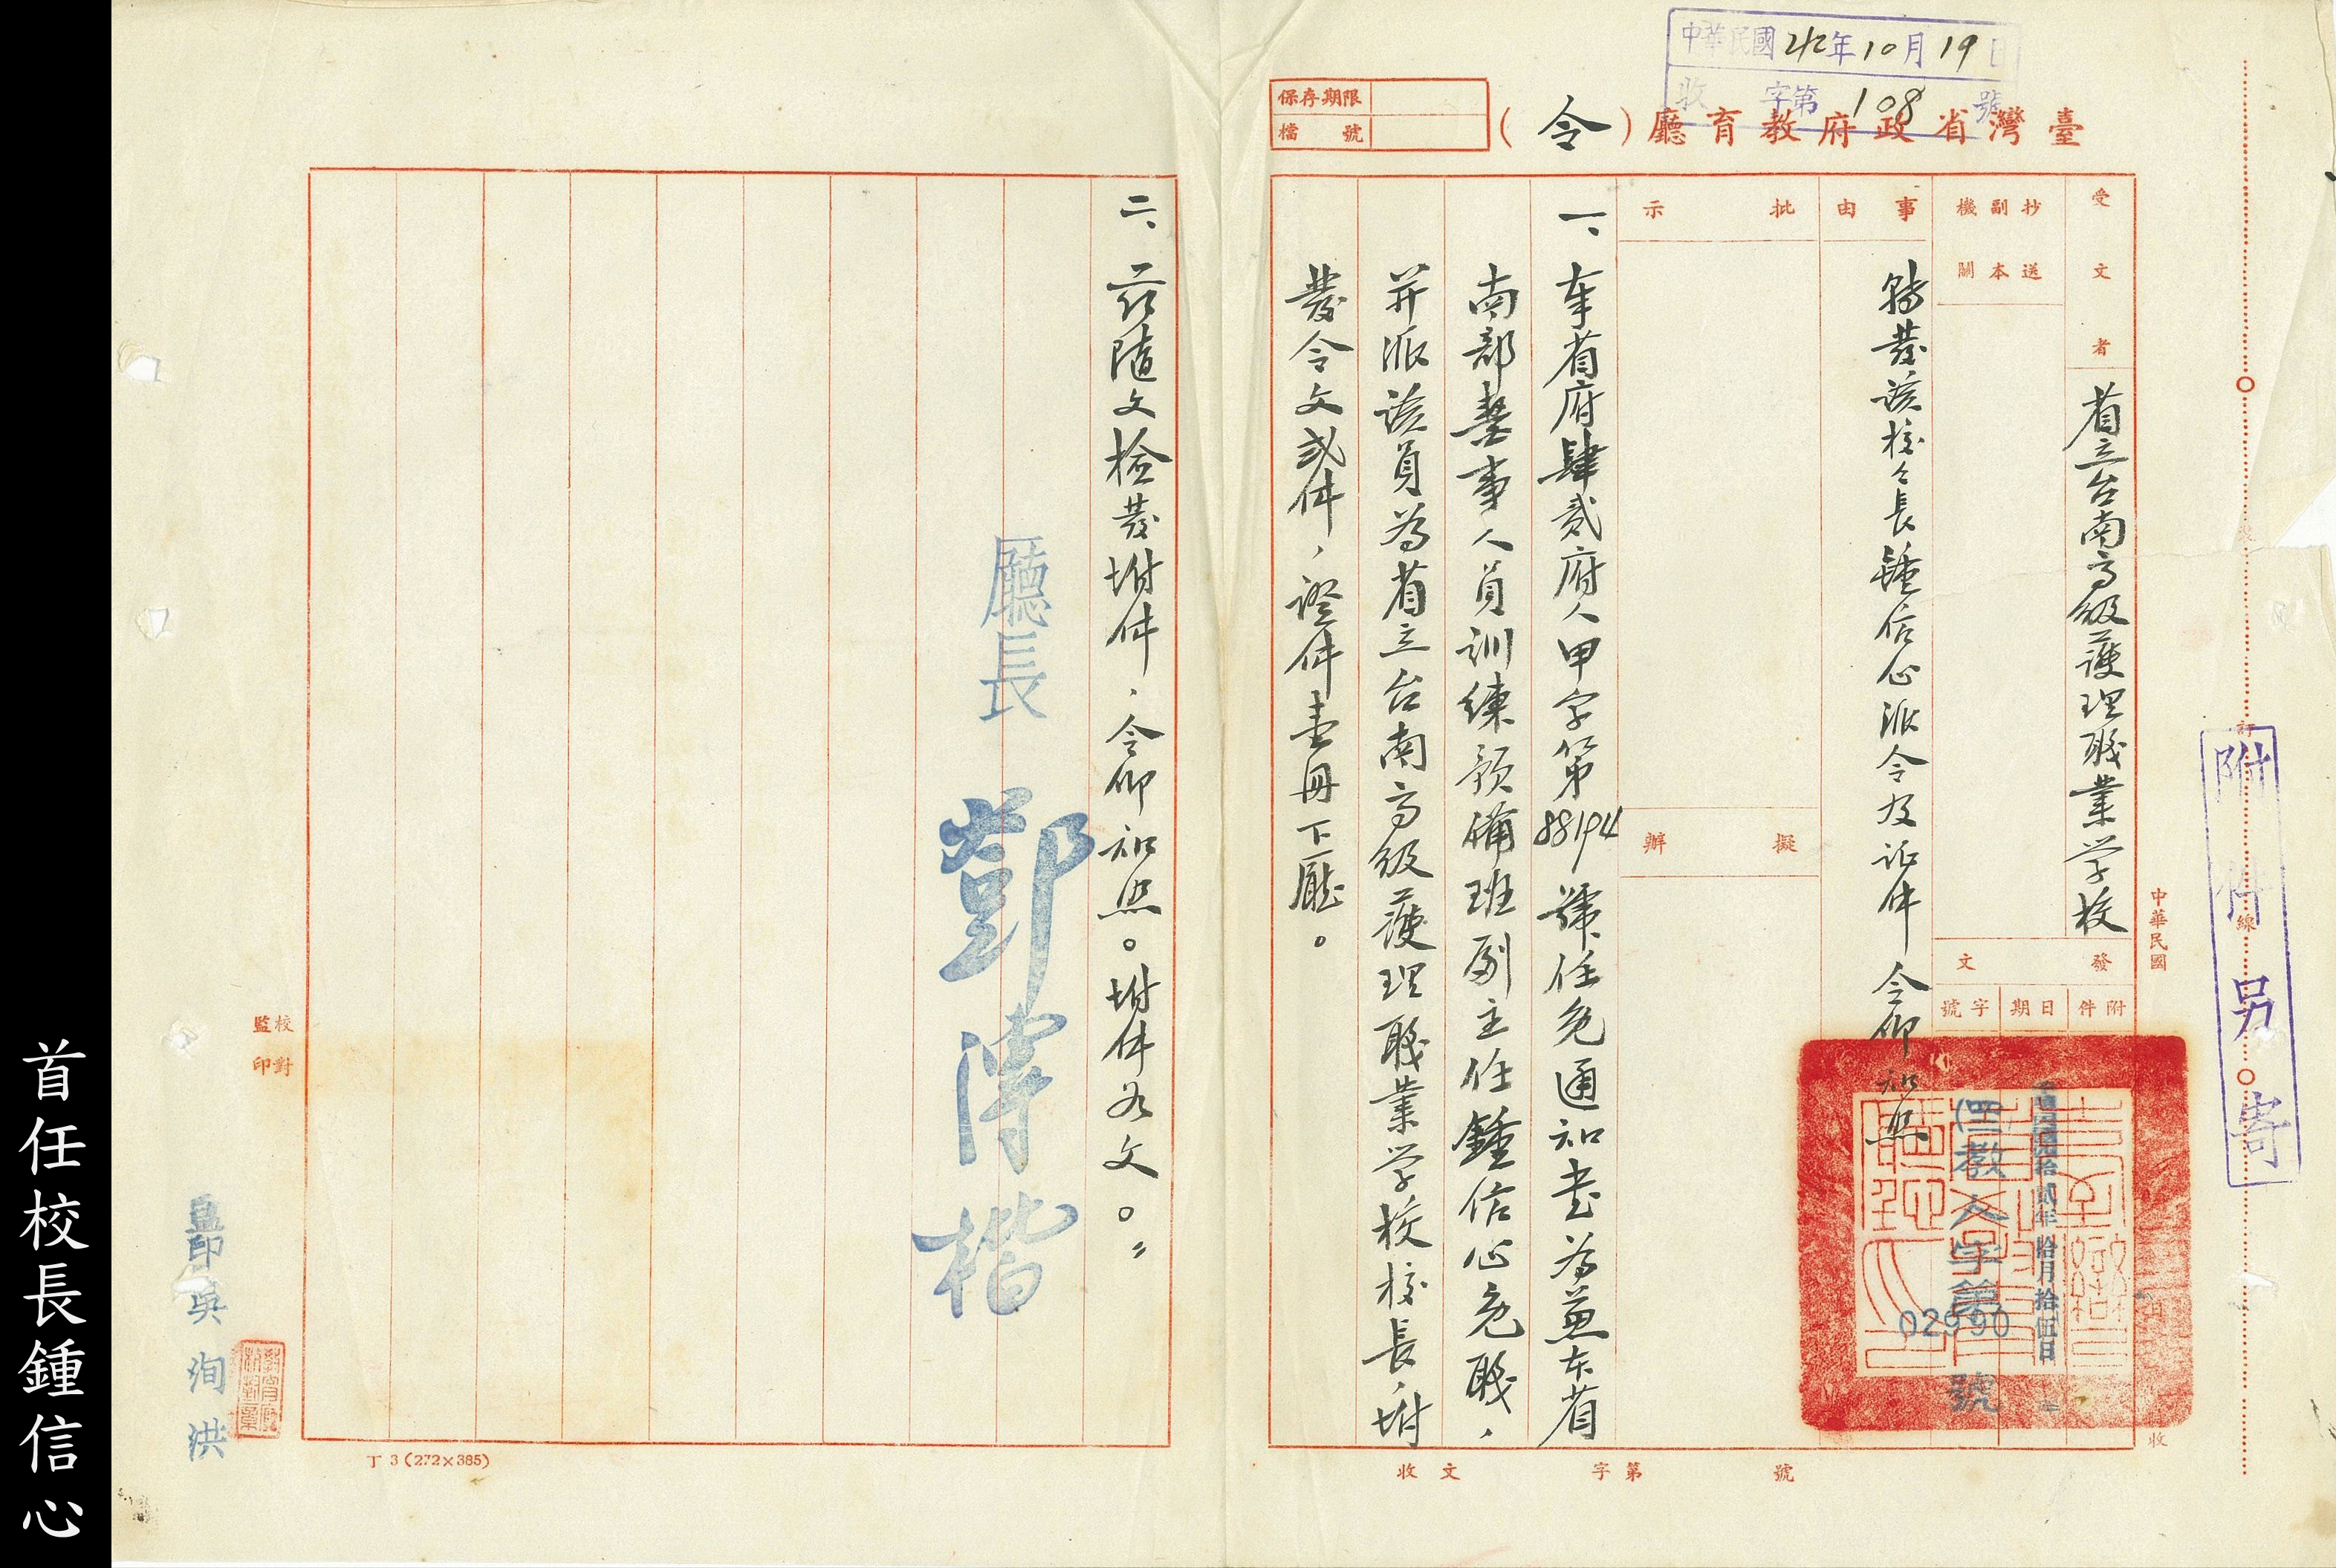 中華民國42年10月19日
收 字第108號
臺灣省政府教育廳(令)
保存期限
檔號
受文者
省立台南高級護理職業学校
抄送副本機關
事由
轉發該校々長鍾信心派令及证件令仰知照
批示
擬辦
發文
附件
日期
字號
中華民國
肆拾貳年拾月拾伍日
四教人字第02990號
附件另寄
訂
線
一、奉省府肆貳府人甲字第88194號任免通知書為兼本省
南部藥事人員訓練預備班副主任鍾信心免職，
并派該員為省立台南高級護理職業学校校長，坿
發令文貳件，證件壹冊下廳。
二、茲隨文檢發坿件，令仰知照。坿件如文。〃
廳長 鄧傳楷
校對
監印
監印吳洵洪
收文 字第 號
收
丁3(272×385)
首任校長鍾信心